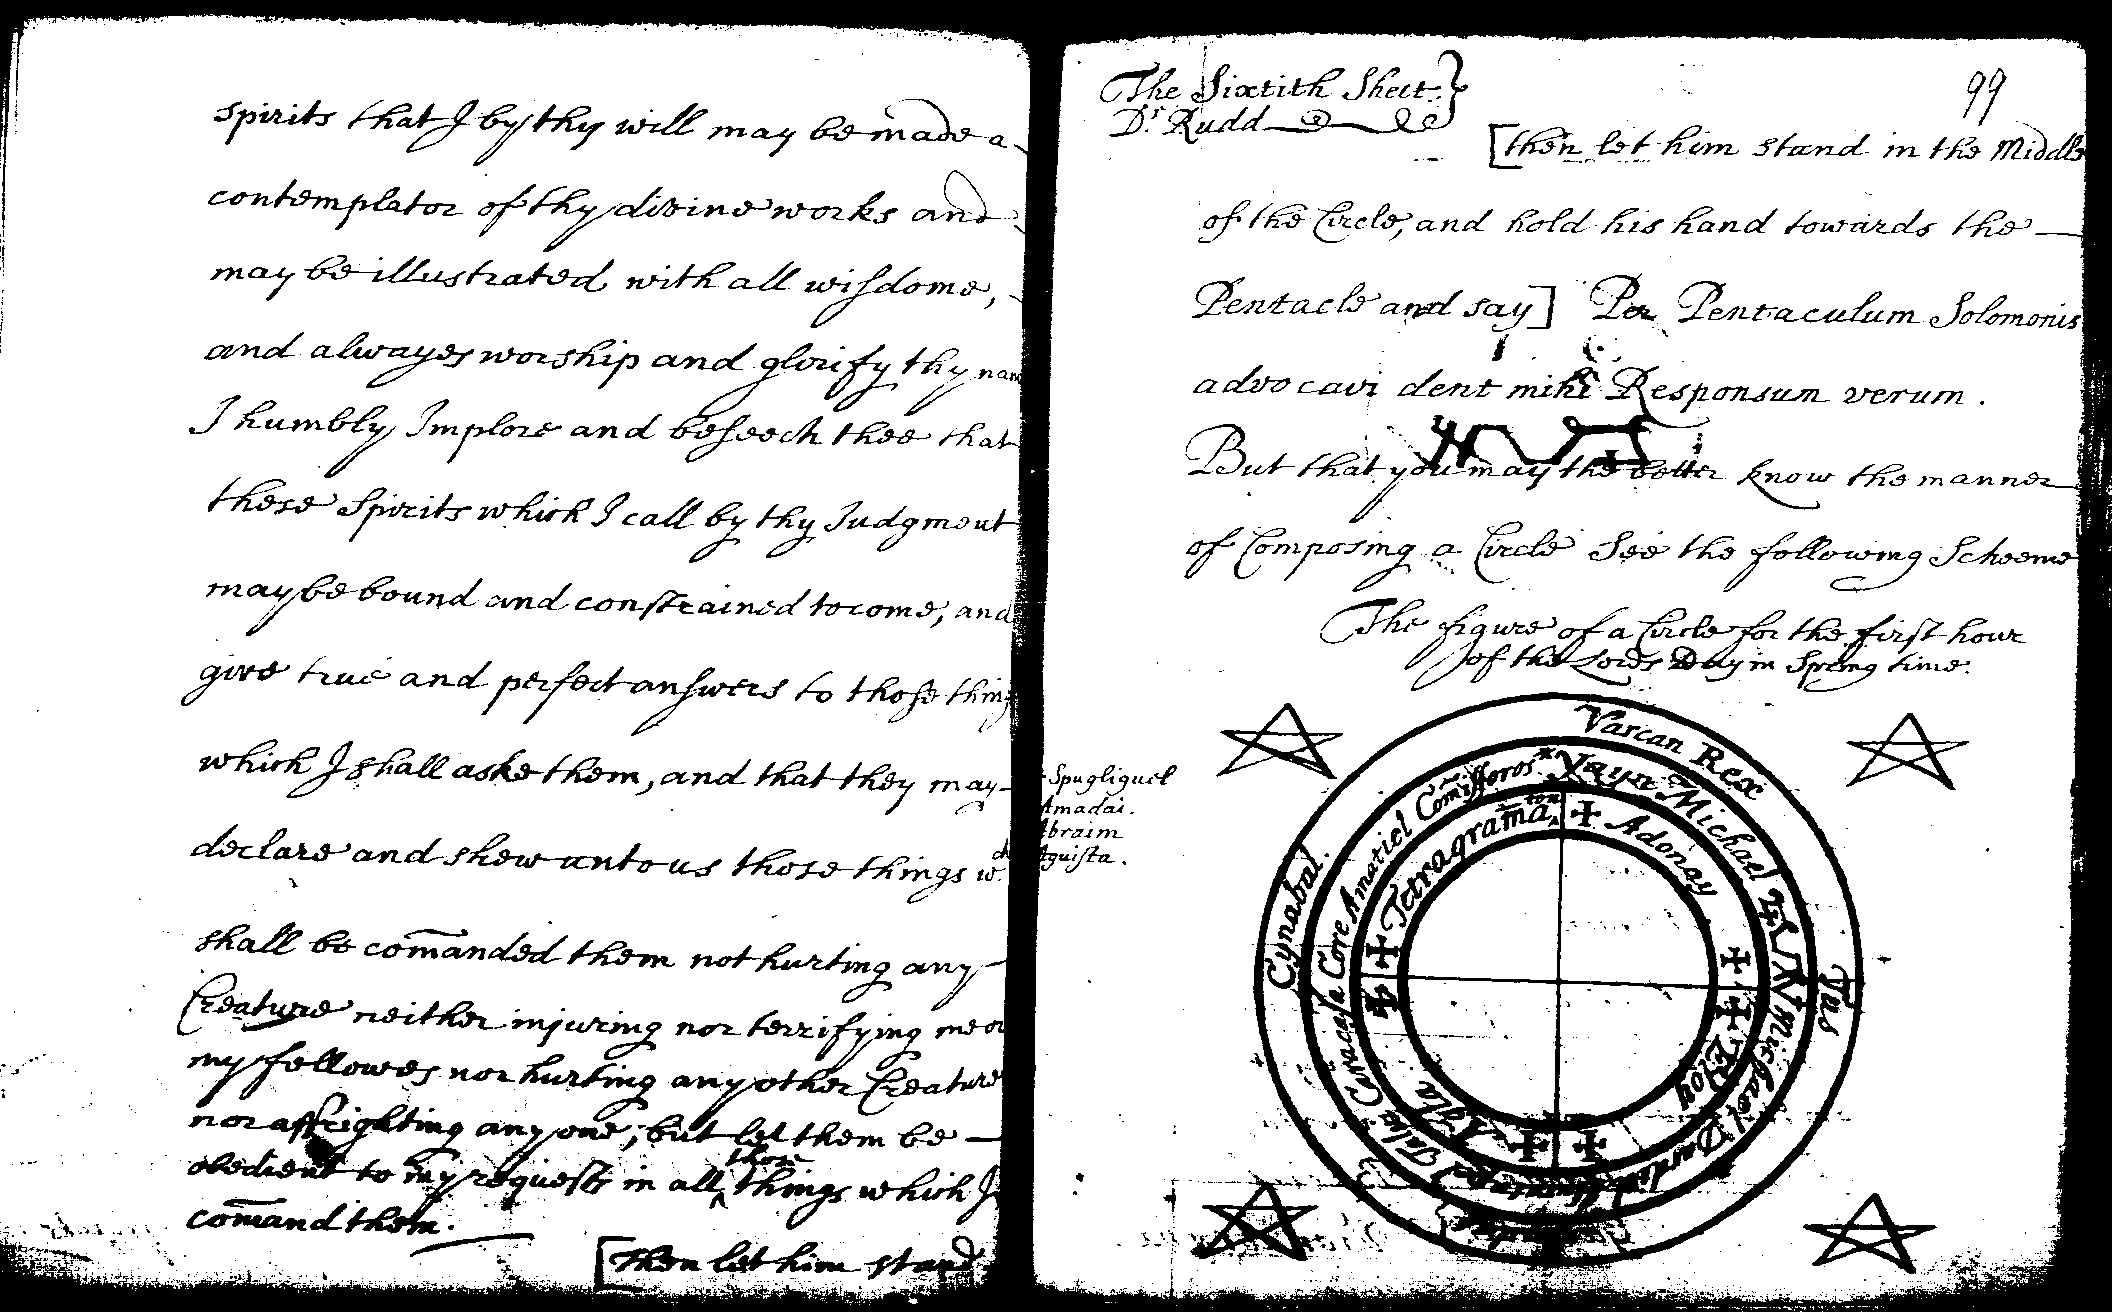 spirits that I by thy will may be made a
contemplator of thy divine works and
may be illustrated with all wisdome,
and alwayes worship and glorify thy nam
I humbly Implore and beseech thee that
these Spirits which I call by thy Judgment
may be bound and constrained to come, and
give true and perfect answers to those thing
which I shall aske them, and that they may
declare and shew unto us those things wch
shall be com̄anded them not hurting any
Creature neither injuring nor terrifying me or
my fellowes nor hurting any other Creature
nor affrighting any one; but let them be
obedient to my requests in all those things which I
com̄and them.
[then let him stand
The Sixtith Sheet
Dr Rudd
99
[then let him stand in the Middle
of the Circle, and hold his hand towards the
Pentacle and say] Per Pentaculum Solomonis
advocavi dent mihi Responsum verum.
But that you may the better know the manner
of Composing a Circle See the following Scheeme
The figure of a Circle for the first hour
of the Lords Day in Spring time.
Spugliguel
Amadai.
Abraim
Aguista.
Varcan Rex
Tus
Cynabal.
Yayn Michael
Michael Dardiel
Tal: Caracasa Core Amatiel Com̄issoros
Tetragram̄aton
Adonay
Eloy
Agla